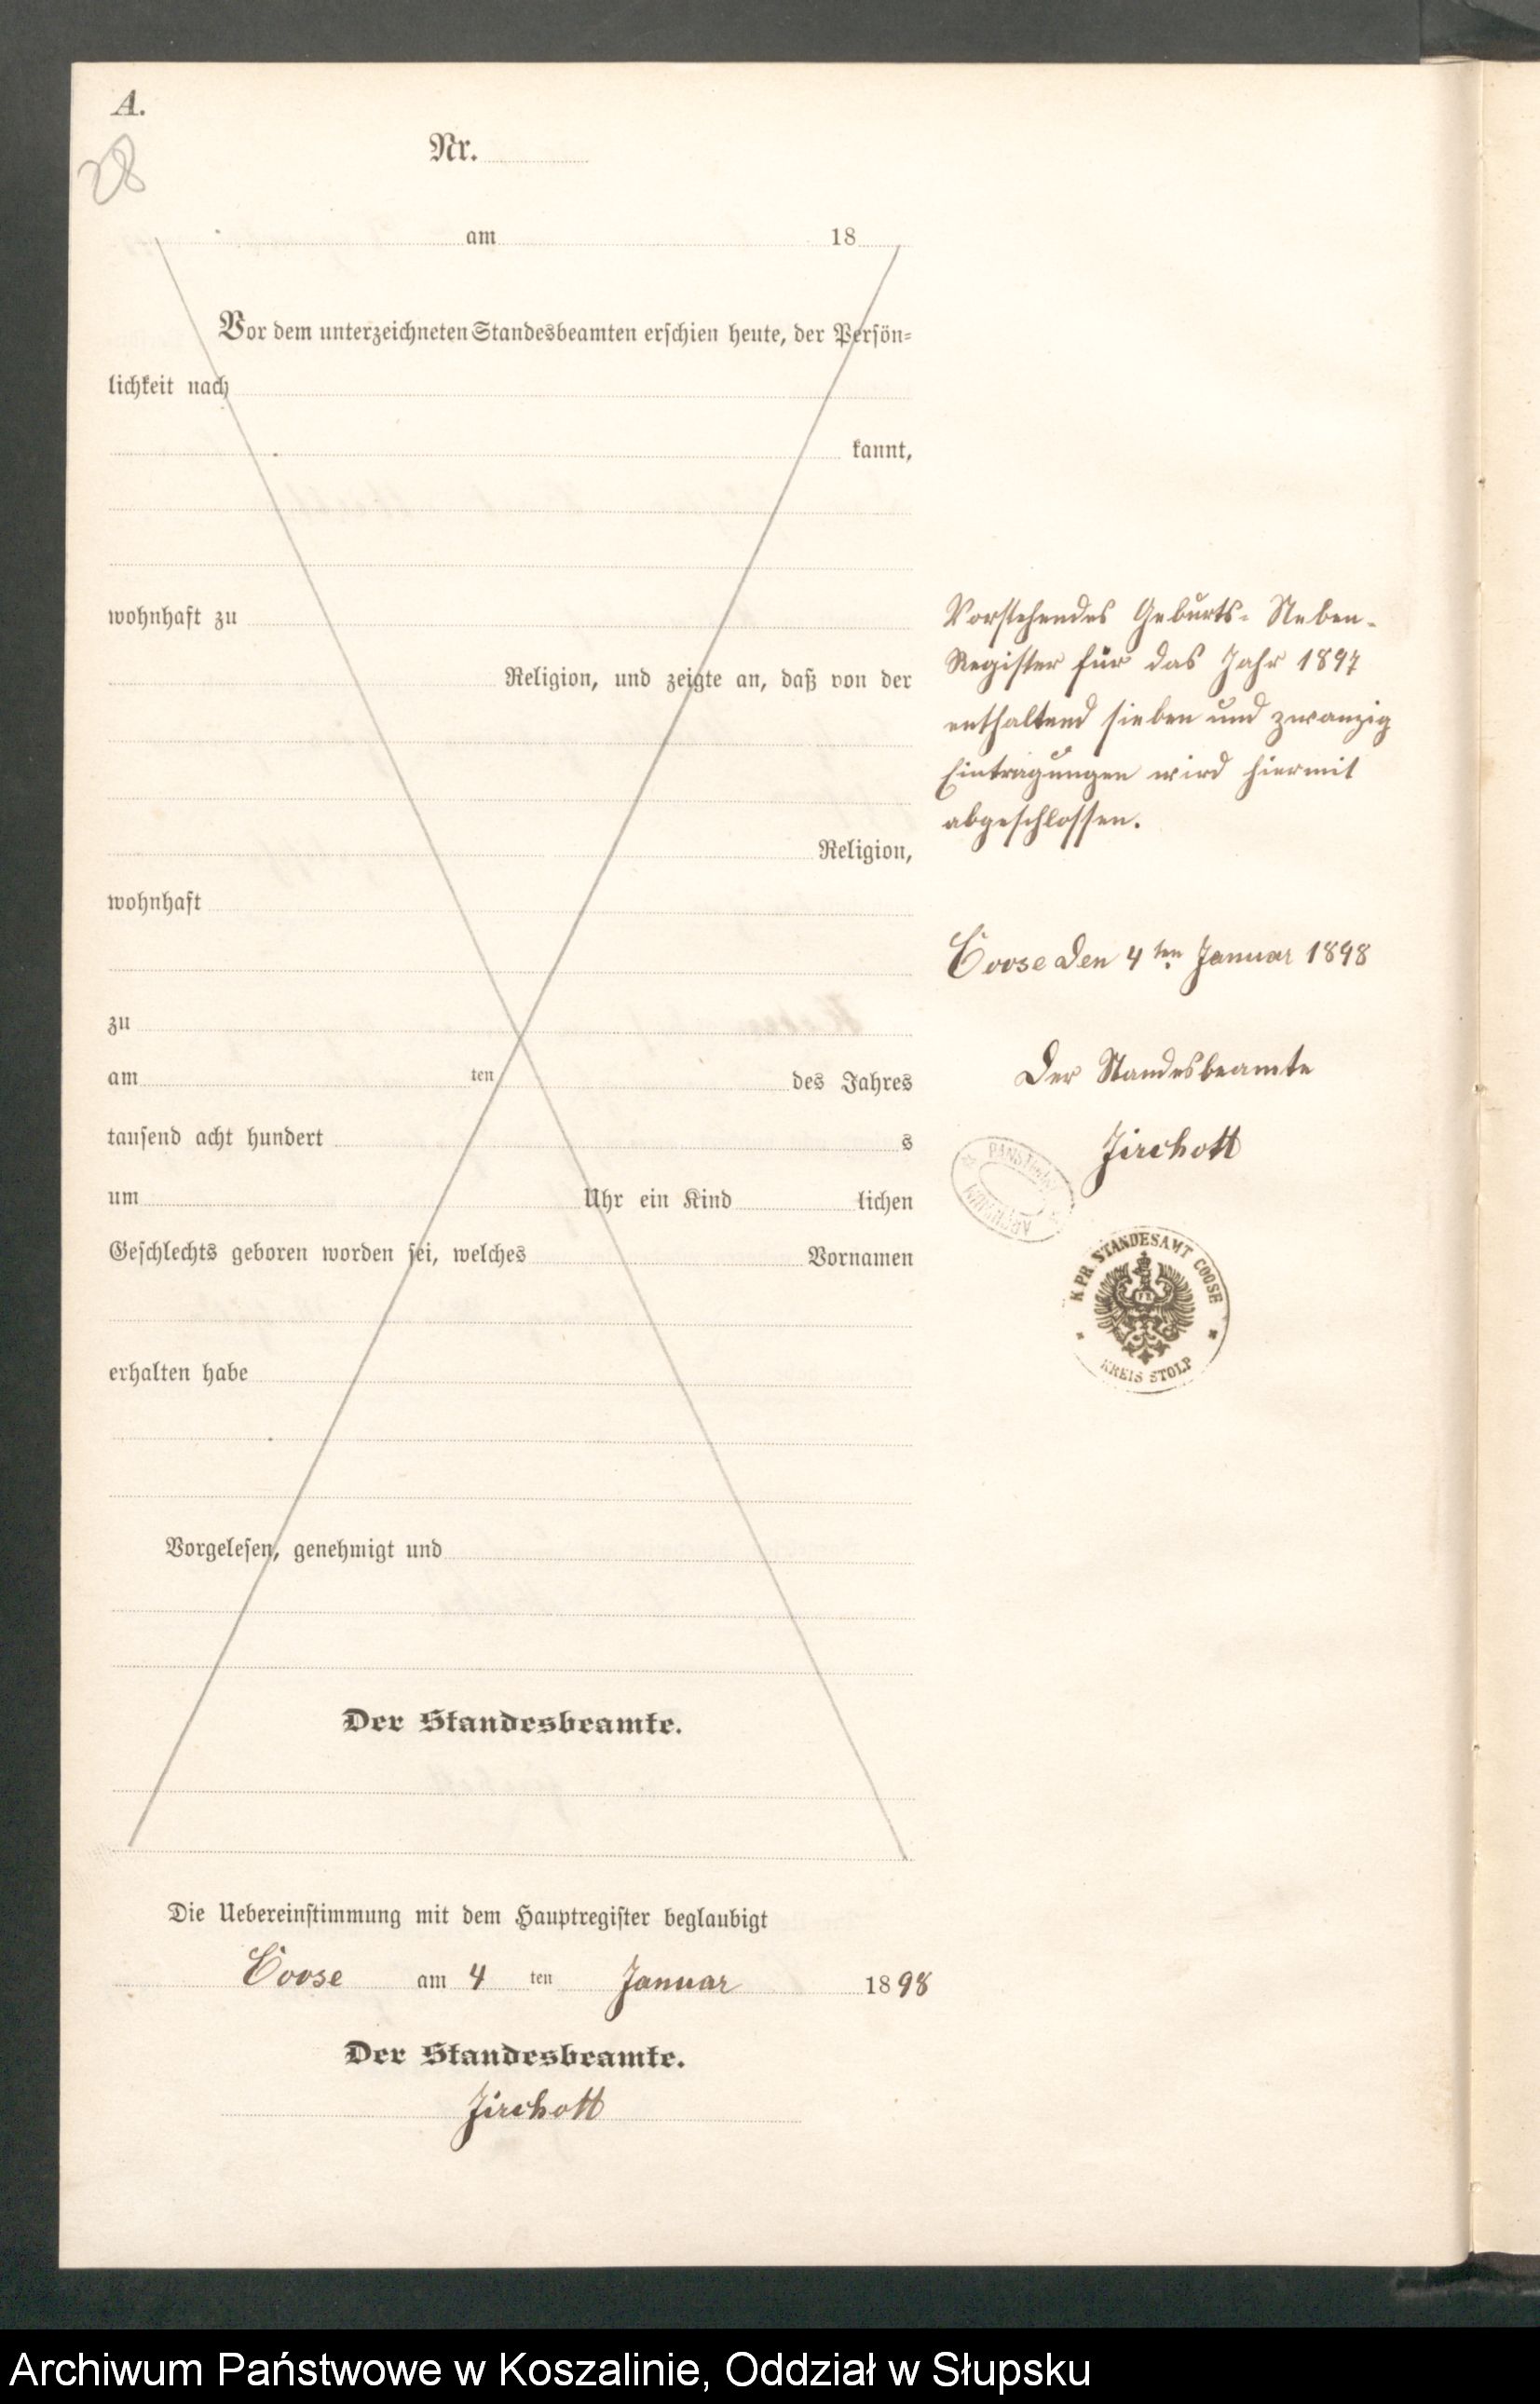 A.
28
Nr.
am 18
Vor dem unterzeichneten Standesbeamten erschien heute, der Persön=
lichkeit nach
kannt,
wohnhaft zu
Religion, und zeigte an, daß von der
Religion,
wohnhaft
zu
am ten des Jahres
tausend acht hundert s
um Uhr ein Kind lichen
Geschlechts geboren worden sei, welches Vornamen
erhalten habe
Vorgelesen, genehmigt und
Der Standesbeamte.
Die Uebereinstimmung mit dem Hauptregister beglaubigt
Coose am 4 ten Januar 1898
Der Standesbeamte.
Zirchott
Vorstehendes Geburts- Neben-
Register für das Jahr 1897
enthaltend sieben und zwanzig
Eintragungen wird hiermit
abgeschlossen.
Coose den 4ten Januar 1898
Der Standesbeamte
Zirchott
K PR STANDESAMT COOSE
KREIS STOLP
Archiwum Państwowe w Koszalinie, Oddział w Słupsku